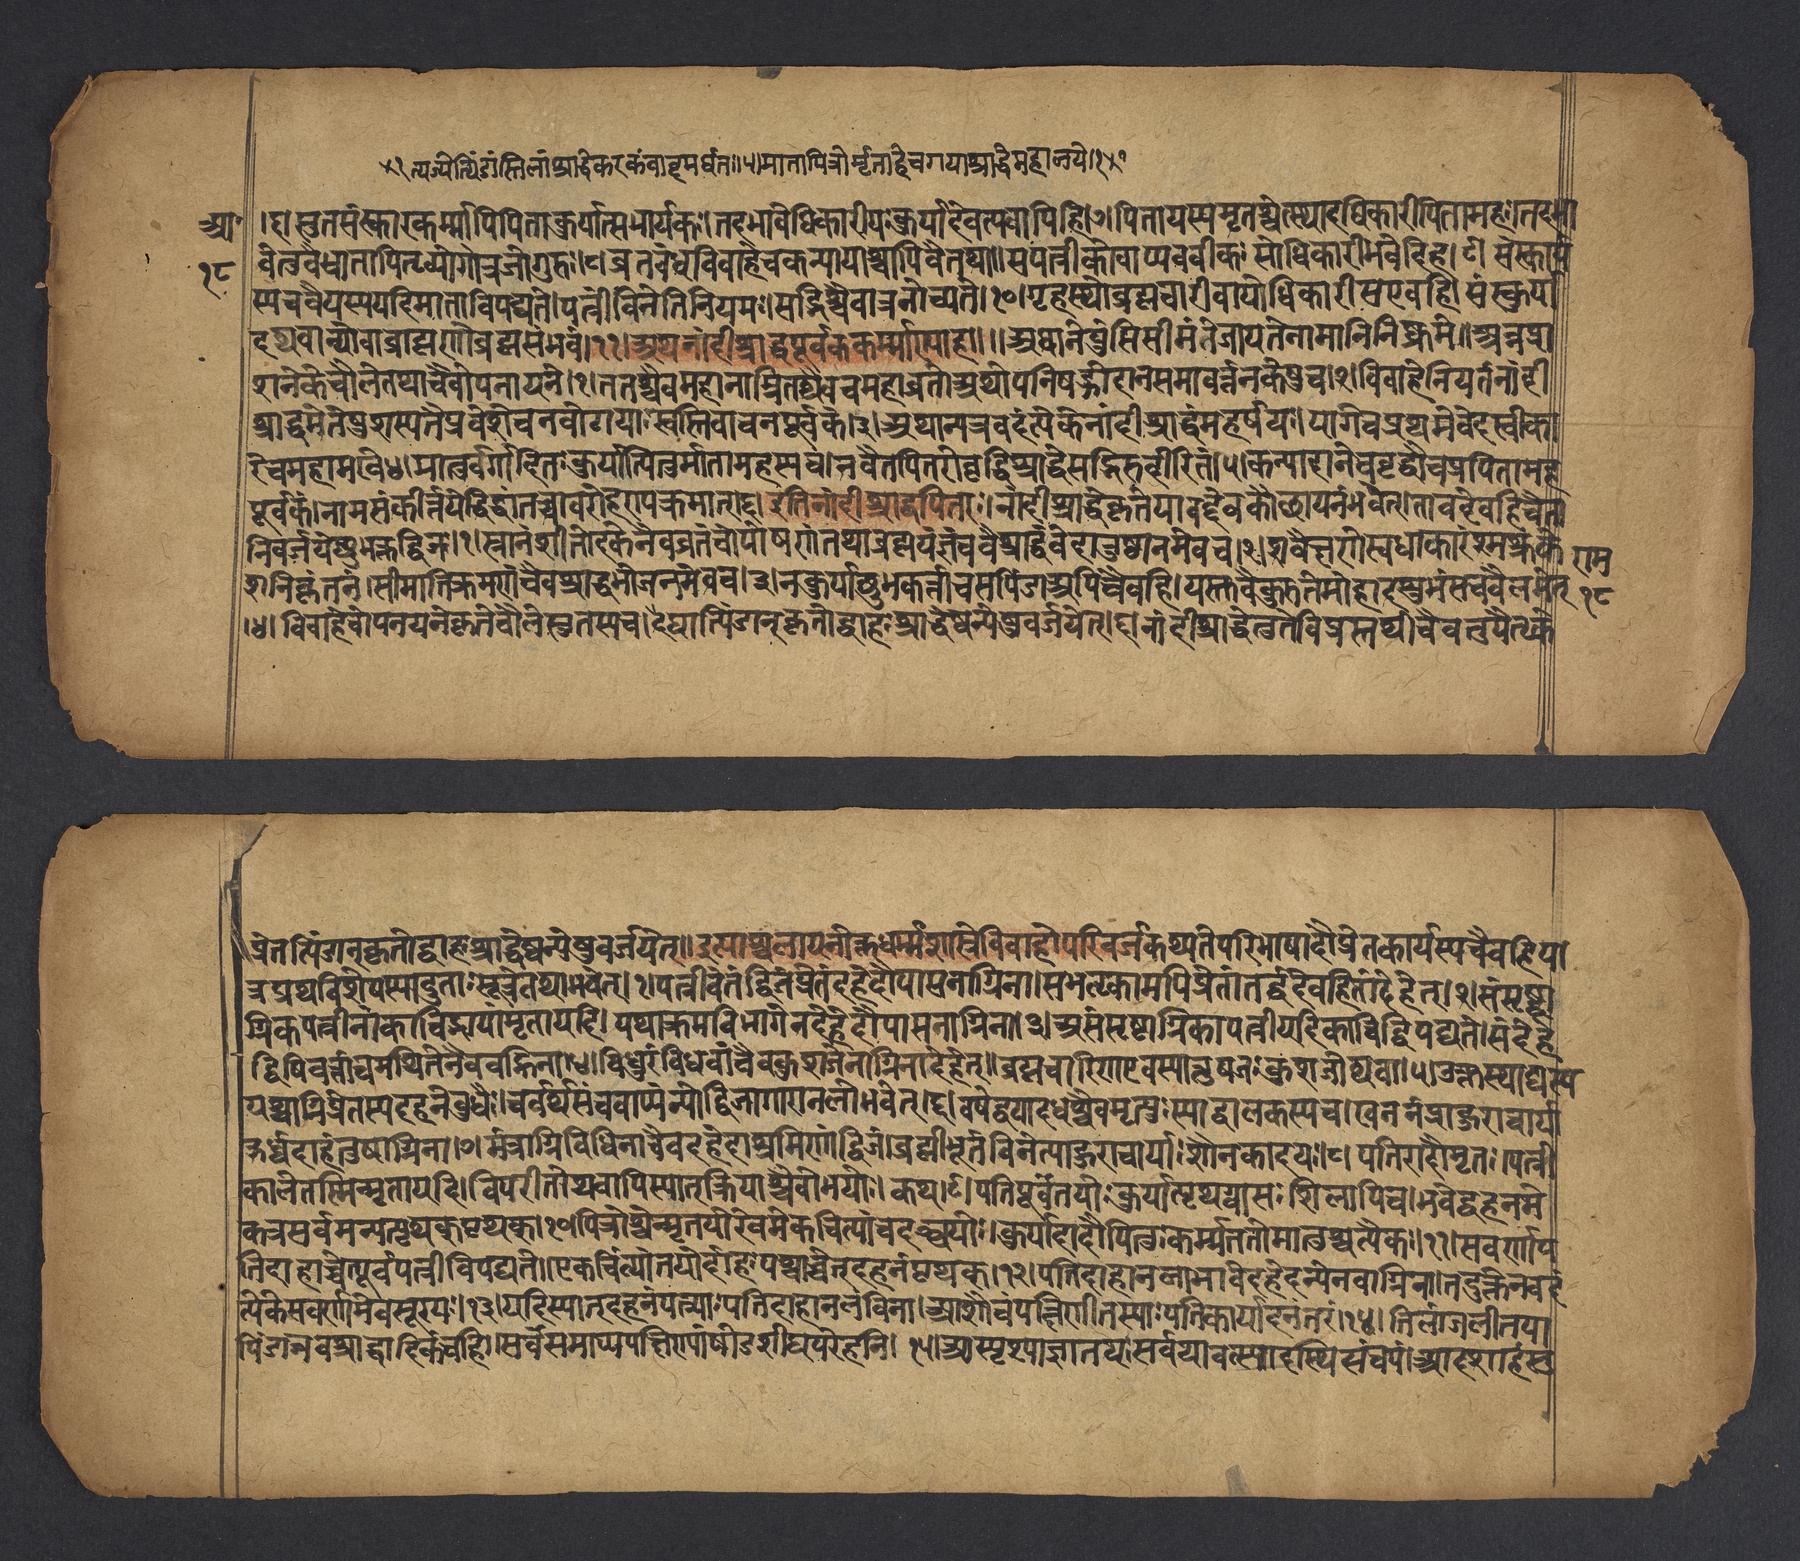 त्यज्येत्पिंडांस्तिलांश्राद्धेकरकंवाहमर्धंत॥५॥मातापित्रोर्मृताहेचगयाश्राद्धेमहालये।
आ॰
१८
।६।सुतसंस्कारकर्म्मापिपिताकुर्यात्सभार्यकः।तदभावेधिकारीयःकुर्यादेवत्पथापिहि।७।पितायस्यमृतश्चेत्स्यादधिकारीपितामहः।तदभा
वेतुवैभ्रातापितृव्योगोत्रजोगुरुः।८।व्रतबंधेविवाहेचकन्यायाश्चापिवैतथा॥सपत्नीकोवाप्यपत्नीकः सोधिकारीभवेदिह।९। संस्कार्य
स्यचवैयस्ययदिमाताविपद्यते।पत्नींविनेतिनियमः।सद्भिश्चैवात्रनोच्यते।१०।गृहस्थोब्रह्मचारीवायोधिकारीसएवहि। संस्कुर्या
दथवान्योवाब्राह्मणोब्रह्मसंभवं।११।अथनांदीश्राद्धपूर्वककर्म्माण्याह।॥आधानेपुंसिसीमंतेजायतेनामानिनिष्क्रमे॥अन्नप्रा
शनेकेचौलेतथाचैवोपनायने।१।ततश्चैवमहानाम्नितथैवचमहाव्रते।अथोपनिषद्गोदानसमावर्त्तनकेषुच।२।विवाहेनियतंनांदी
श्राद्धमेतेषुशस्यतेप्रवेशेचनवोढायाःस्वस्तिवाचनपूर्वकं।३।अथान्यत्रवदंत्येकेनांदीश्राद्धंमहर्षयः।यागेचप्रथमेवेदस्वीका
रेचमहामखे।४।मातृवर्गादितःकुर्यात्पितुर्मातामहस्यच।नचैतेपितरोवृद्धिश्राद्धेसद्भिरुदीरितं।५।कन्यादानेचवृद्धौचप्रपितामह
पूर्वकं।नामसंकीर्त्तयेद्विद्वांतच्चावरोहणक्रमात्।६।इतिनांदीश्राद्धपितरः।नांदीश्राद्धेकृतेयावद्देवकोत्थायनंभवेत्।तावदेवहिचैता
निवर्जयेच्छुभकृद्द्विजः।१।स्नानंशीतोदकेनैवव्रतंचोपोषणंतथा।ब्रह्मयज्ञंचवैश्राद्धंवेदानुष्ठानमेवच।२।शवेत्तरीस्वधाकारंश्मश्रुकं
शनिकृंतनं।सीमातिक्रमणंचैवश्राद्धभोजनमेवच।३।नकुर्याच्छुभकर्त्ताचसपिंडाअपिचैवहि।यस्तुवैकुरुतेमोहादस्तुभंसचवैलभेत्
राम
१८
।४। विवाहेचोपनयनेकृतेचौलेसुतस्यच।दद्यात्पिंडान्कृतोद्वाहःश्राद्धेष्वन्येषुवर्जयेत्।५।नांदीश्राद्धेतुतेविप्रस्तर्थाचैवतुपैतृके
प्रेतपिंडान्कृतोद्वाहःश्राद्धेष्वन्येषुवर्जयेत्॥इत्याश्वलायनोक्तधर्म्मशास्त्रेविवाहोपरिवर्जंकथ्यतेपरिभाषादौप्रेतकार्यस्यचैवहि।या
त्रप्रथविशेषस्यादुताःसूत्रेतथाभवेत्।१।पत्नीचेतंद्वितंप्रेतंदहेदौपासनाग्निना।सभर्तृकामपिप्रेतांतद्वदेवहितांदहेत्।२।संसृष्टा
ग्निकपत्नीनांकाचिद्भार्यामृतायदि।यथाक्रमविभागेनदहेदौपासनाग्निना।३।असंसृष्टाग्निकापत्नीयदिकाचिद्विपद्यते।संदहे
द्विपिवत्तांचमथितेनैववह्निना।४।विधुरंविधवांचैवकुशजेनाग्निनादहेत्॥ब्रह्मचारिणएवस्यात्तुषजःकुशजोथवा।५।उक्तस्याद्यस्य
यश्चाग्निःप्रेतस्यदहनेबुधैः।चर्वर्थंसचवाप्यन्योद्विजागारानलोभवेत्।६।वर्षद्वयादधश्चैवमृत्युःस्याद्बालकस्यच।खननंप्राहुराचार्या
ऊर्ध्वंदाहंतुषाग्निना।७।मंत्राग्निविधिनाचैवदहेदाश्रमिणंद्विजं।ब्रह्मीभूतंविनेत्याहुराचार्याःशौनकादयः।८। पतिरादौमृतः।पत्नी
कालेतस्मिन्मृतायदि।विपरीतोथवापिस्यात्क्रियाश्चैवोभयोः।कथं।९।पतिपूर्वंतयोःकुर्यात्पृथग्वासःशिलापिच।भवेद्दहनमे
कत्रसर्वमन्यत्पृथक्पृथक्।१०।पित्रोश्चेन्मृतयोरेवमेकचित्यांचदह्ययोः।कुर्यादादौपितुःकर्म्मततोमातुश्चत्येकः।११।सवर्णाप
तिदाहाच्चेत्पूर्वंपत्नीविपद्यते।एकचित्यांतयोर्दाहःपश्चाच्चेत्दहनंपृथक्।१२।पतिदाहानलाभावेदहेदन्येनवाग्निना।तदुक्तेनचद
त्येकेसवर्णामेवसूरयः।१३।यदिस्यात्दहनंपत्न्याःपतिदाहानलंविना।आशौचंपक्षिणीतस्याःपतिकार्यादनंतरं।१४। तिलांजलीतथा
पिंडान्नवश्राद्धादिकंचहि।सर्वंसमाप्यपत्निण्याषोडशीघपरेहनि। १५।अस्पृश्याज्ञातयःसर्वेयावत्स्यादस्थिसंचयं।आदशाहंतु